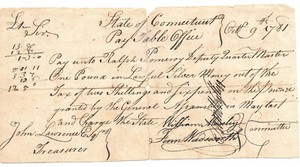 State of Connecticut
Pay Table Office
Octr 9th 1781
Sir,
Pay unto Ralph Pomeroy Deputy Quarter Master
One Pound in Lawful Silver Money out of the
Tax of two Shillings and Sixpence on the
granted by the General Assembly in May last
and Charge the State
John Lawrence Esqr
Treasurer
William Moseley
Fenn Wadsworth
Committee